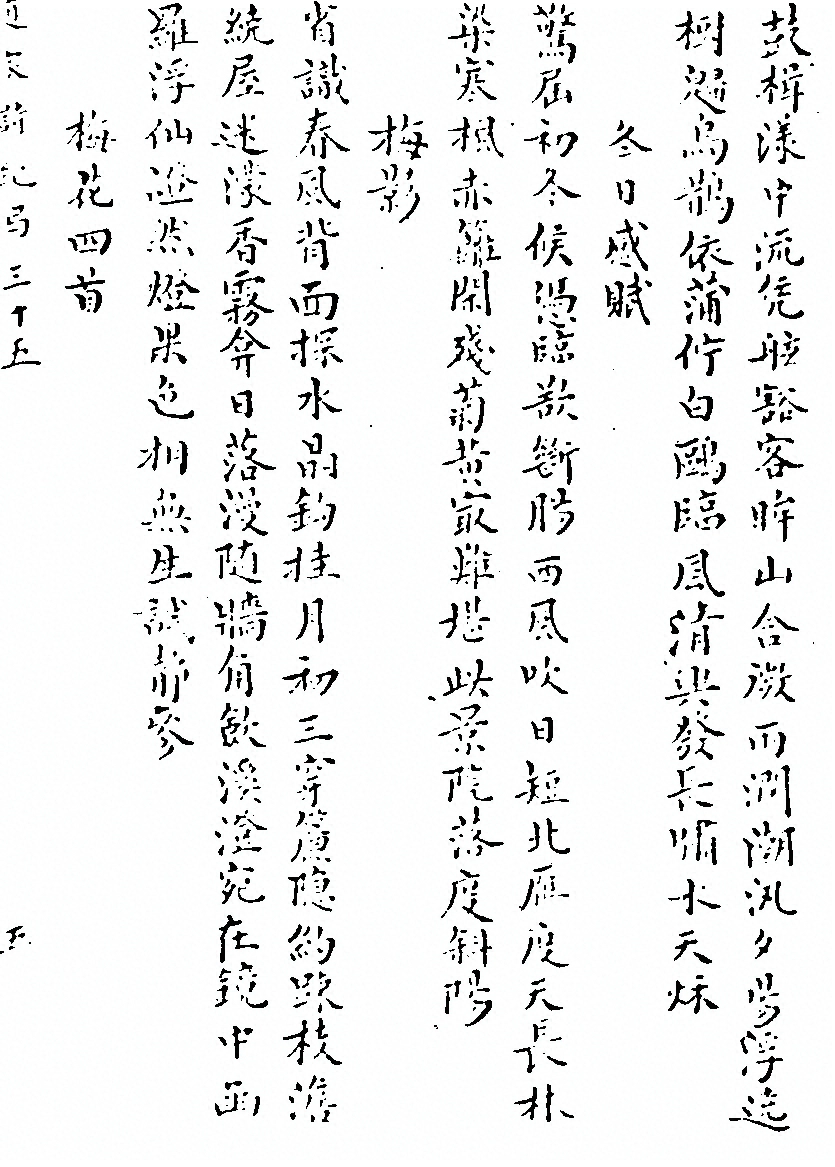 鼓楫漾中流凭舷豁客眸山含微雨潤潮汎夕陽浮遶
樹烏鵲依蒲佇白鷗臨風清興發長嘯水天秌
冬日感賦
驚屆初冬候憑臨欲斷腸西風吹日短北雁度天長林
染寒楓赤籬閑殘菊黃㝡難堪此景院落度斜陽
梅影
省識春風背面探水晶鈎挂月初三穿簾隱約疎枝澹
繞屋迷濛香霧弇日落漫隨牆角飲溪澄宛在鏡中函
羅浮仙證然燈果色相無生試靜參
梅花四首
三十五
五